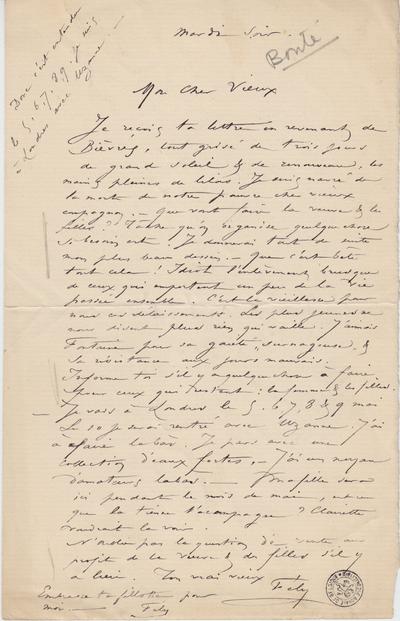 Donc c'est entendu
le 5. 6. 7. 8. 9. je suis
à Londres avec Uzanne.
Mardi Soir.
Bonté
Mon Cher Vieux
Je reçois ta lettre en revenant de
Bièvres, tout grisé de trois jours
de grand soleil & de renouveau, les
mains pleines de lilas. Je suis navré de
la mort de notre pauvre cher vieux
compagnon. – Que vont faire la veuve & les
filles? qu'on organise quelque chose
si besoin est. Je donnerai tout de suite
mon plus beau dessin. – Que c'est bête
tout cela! l'enlèvement brusque
de ceux qui emportent un peu de la vie
passée ensemble. C'est la vieillesse pour
nous ces délaissements. Les plus jeunes ne
nous disent plus rien qui vaille. J'aimais
pour sa gaieté, &
sa résistance aux jours mauvais.
Informe toi s'il y a quelque chose à faire
pour ceux qui restent: la femme & les filles.
– Je vais à Londres le 5. 6. 7, 8 & 9 mai
Le 10 je serai rentré avec Uzanne. J'ai
à faire là bas. Je pars avec une
collection d'eaux fortes, – J'ai un noyau
d'amateurs là bas. – Ma fille sera
ici pendant le mois de mai,
que la tienne l'accompagne? Clairette
voudrait la voir.
N'oublie pas la question de vente au
profit de la veuve & des filles s'il y
a lieu. Ton vrai vieux Fély
Embrasse ta fillotte pour
moi – Fély